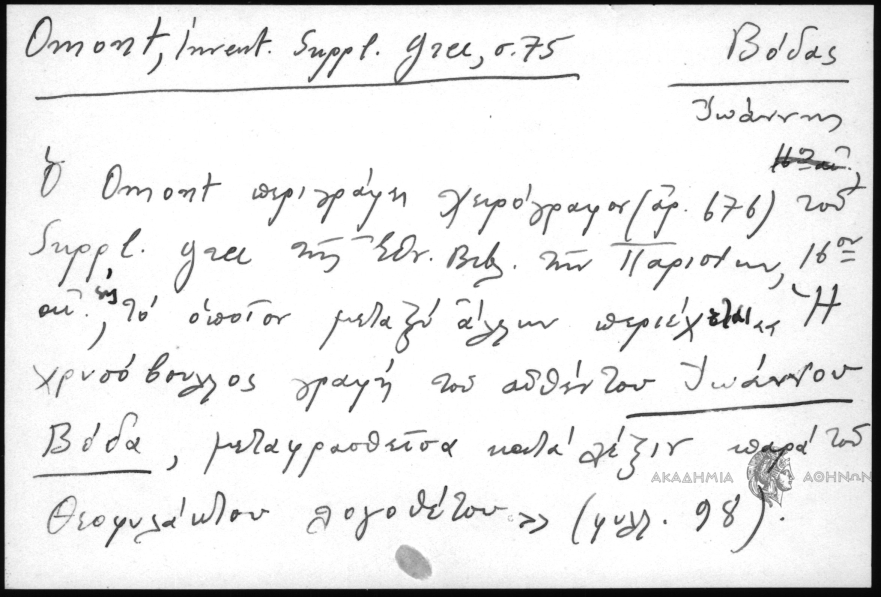 Omont, Invent. Suppl. grec, σ. 75
Βόδας
Ἰωάννης
Ὁ Omont περιγράφει χειρόγραφον (ἀρ. 676) τοῦ
Suppl. grec τῆς Ἐθν. Βιβλ. τῶν Παρισίων, 16ου
αἰ., τὸ ὁποῖον μεταξὺ ἄλλων περιέχεται « Ἡ
χρυσόβουλλος γραφὴ τοῦ αὐθέντου Ἰωάννου
Βόδα, μεταφρασθεῖσα κατὰ λέξιν παρὰ τοῦ
ΑΚΑΔΗΜΙΑ ΑΘΗΝΩΝ
Θεοφυλάκτου λογοθέτου.» (φυλλ. 98).